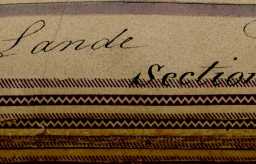 Lande
Section